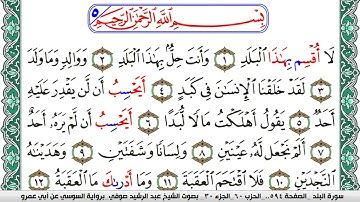 ٥
بِسْمِ اللَّهِ الرَّحْمَٰنِ الرَّحِيمِ
لَا أُقْسِم بِهَٰذَا الْبَلَدِ ١ وَأَنتَ حِلٌّ بِهَٰذَا الْبَلَدِ ٢ وَوَالِدٍ وَمَا وَلَدَ
٣ لَقَدْ خَلَقْنَا الْإِنسَٰنَ فِي كَبَدٍ ٤ أَيَحْسِبُ أَن لَّن يَقْدِرَ عَلَيْهِ
أَحَدٌ ٥ يَقُولُ أَهْلَكْتُ مَالًا لُّبَدًا ٦ أَيَحْسِبُ أَن لَّمْ يَرَهُ أَحَدٌ
٧ أَلَمْ نَجْعَل لَّهُ عَيْنَيْنِ ٨ وَلِسَانًا وَشَفَتَيْنِ ٩ وَهَدَيْنَٰهُ
النَّجْدَيْنِ ١٠ فَلَا اقْتَحَمَ الْعَقَبَةَ ١١ وَمَا أَدْرَىٰكَ مَا الْعَقَبَةُ ١٢
سورة البلد الصفحة ٥٩٤ الحزب ٦٠ الجزء ٣٠ بصوت الشيخ عبد الرشيد صوفي برواية السوسي عن أبي عمرو